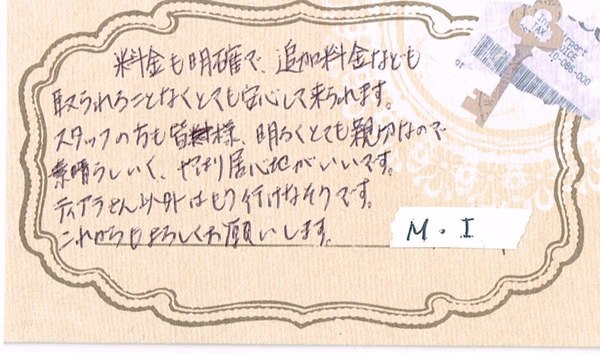 料金も明確で、追加料金なども
取られることなくとても安心して来られます。
スタッフの方も皆様、明るくとても親切なので
素晴らしいく、やはり居心地がいいです。
ティアラさん以外はもう行けなそうです。
これからもよろしくお願いします。
M・I